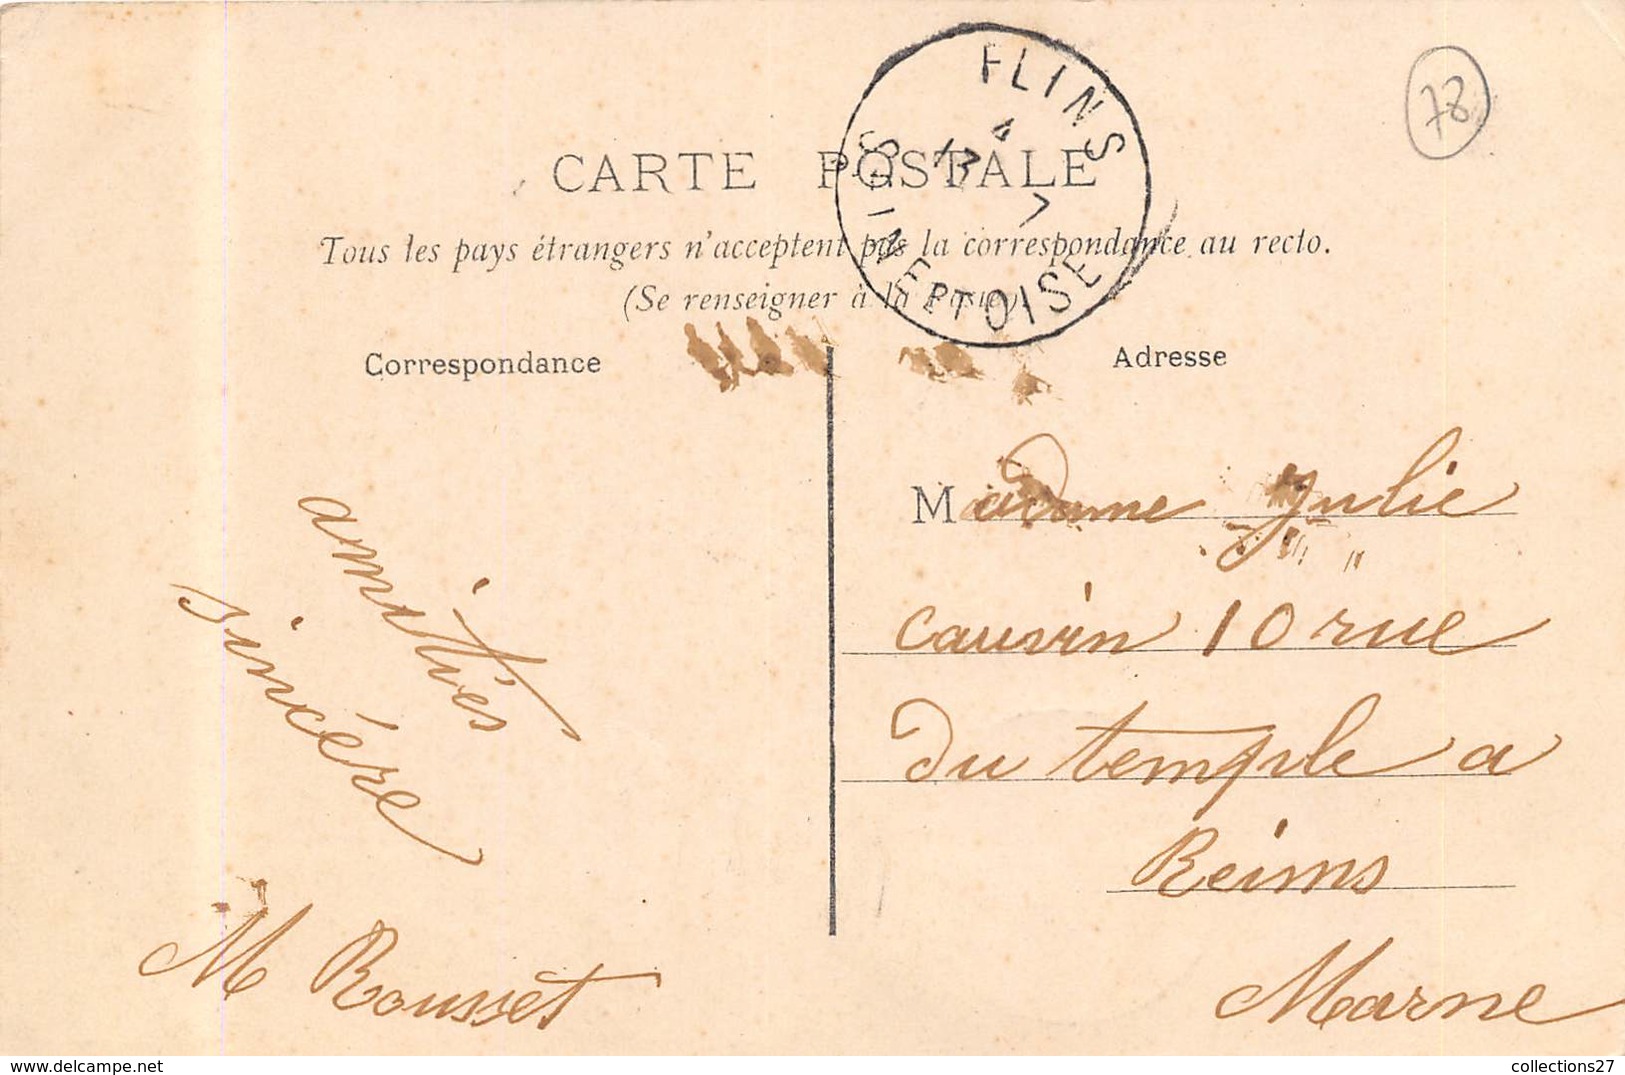 FLINS
SEINE ET OISE
4
13
7
78
CARTE POSTALE
Tous les pays étrangers n'acceptent pas la correspondance au recto.
(Se renseigner à la Poste)
Correspondance
Adresse
amitiés
sincère
M Rousset
Madame Julie
Cauvin 10 rue
Du temple a
Reims
Marne
collections27